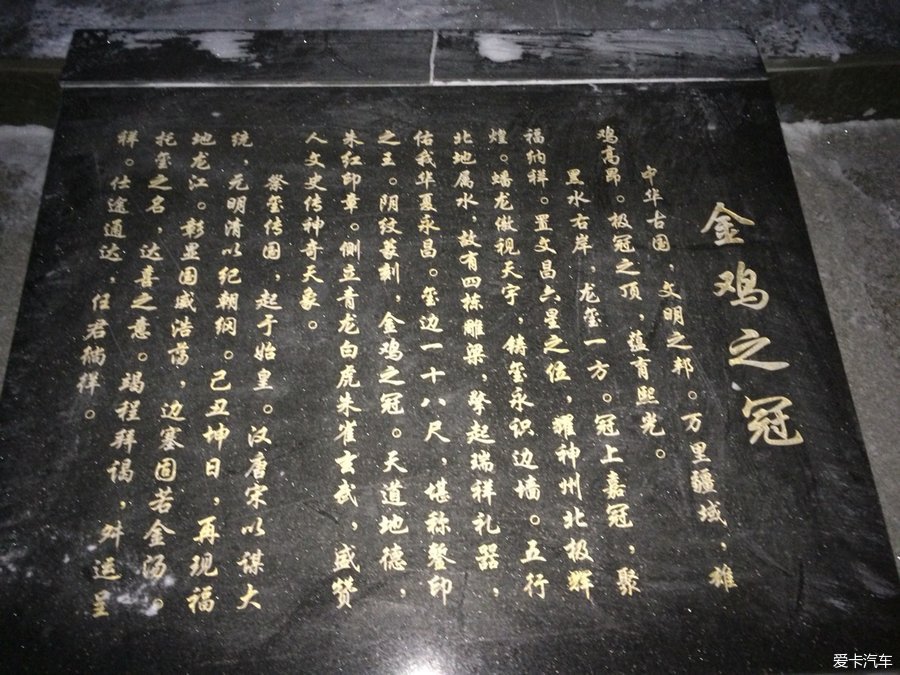 金鸡之冠
中华古国，文明之邦。万里疆域，雄
鸡高昂。极冠之顶，蕴育熙光。
黑水右岸，龙玺一方。冠上嘉冠，聚
福纳祥。置文昌六星之位，耀神州北极辉
煌。蟠龙傲视天宇，铸玺永识边墙。五行
北地属水，故有四栋雕梁，擎起瑞祥礼器，
佑我华夏永昌。玺边一十八尺，堪称鏊印
之王。阴纹篆刻，金鸡之冠。天道地德，
朱红印章。侧立青龙白虎朱雀玄武，盛赞
人文史传神奇天象。
祭玺传国，起于始皇。汉唐宋以谋大
统，元明清以纪朝纲。己丑坤日，再现福
地龙江。彰显国威浩荡，边塞固若金汤。
托玺之名，达喜之意。竭程拜谒，舛运呈
祥。仕途通达，任君徜徉。
爱卡汽车